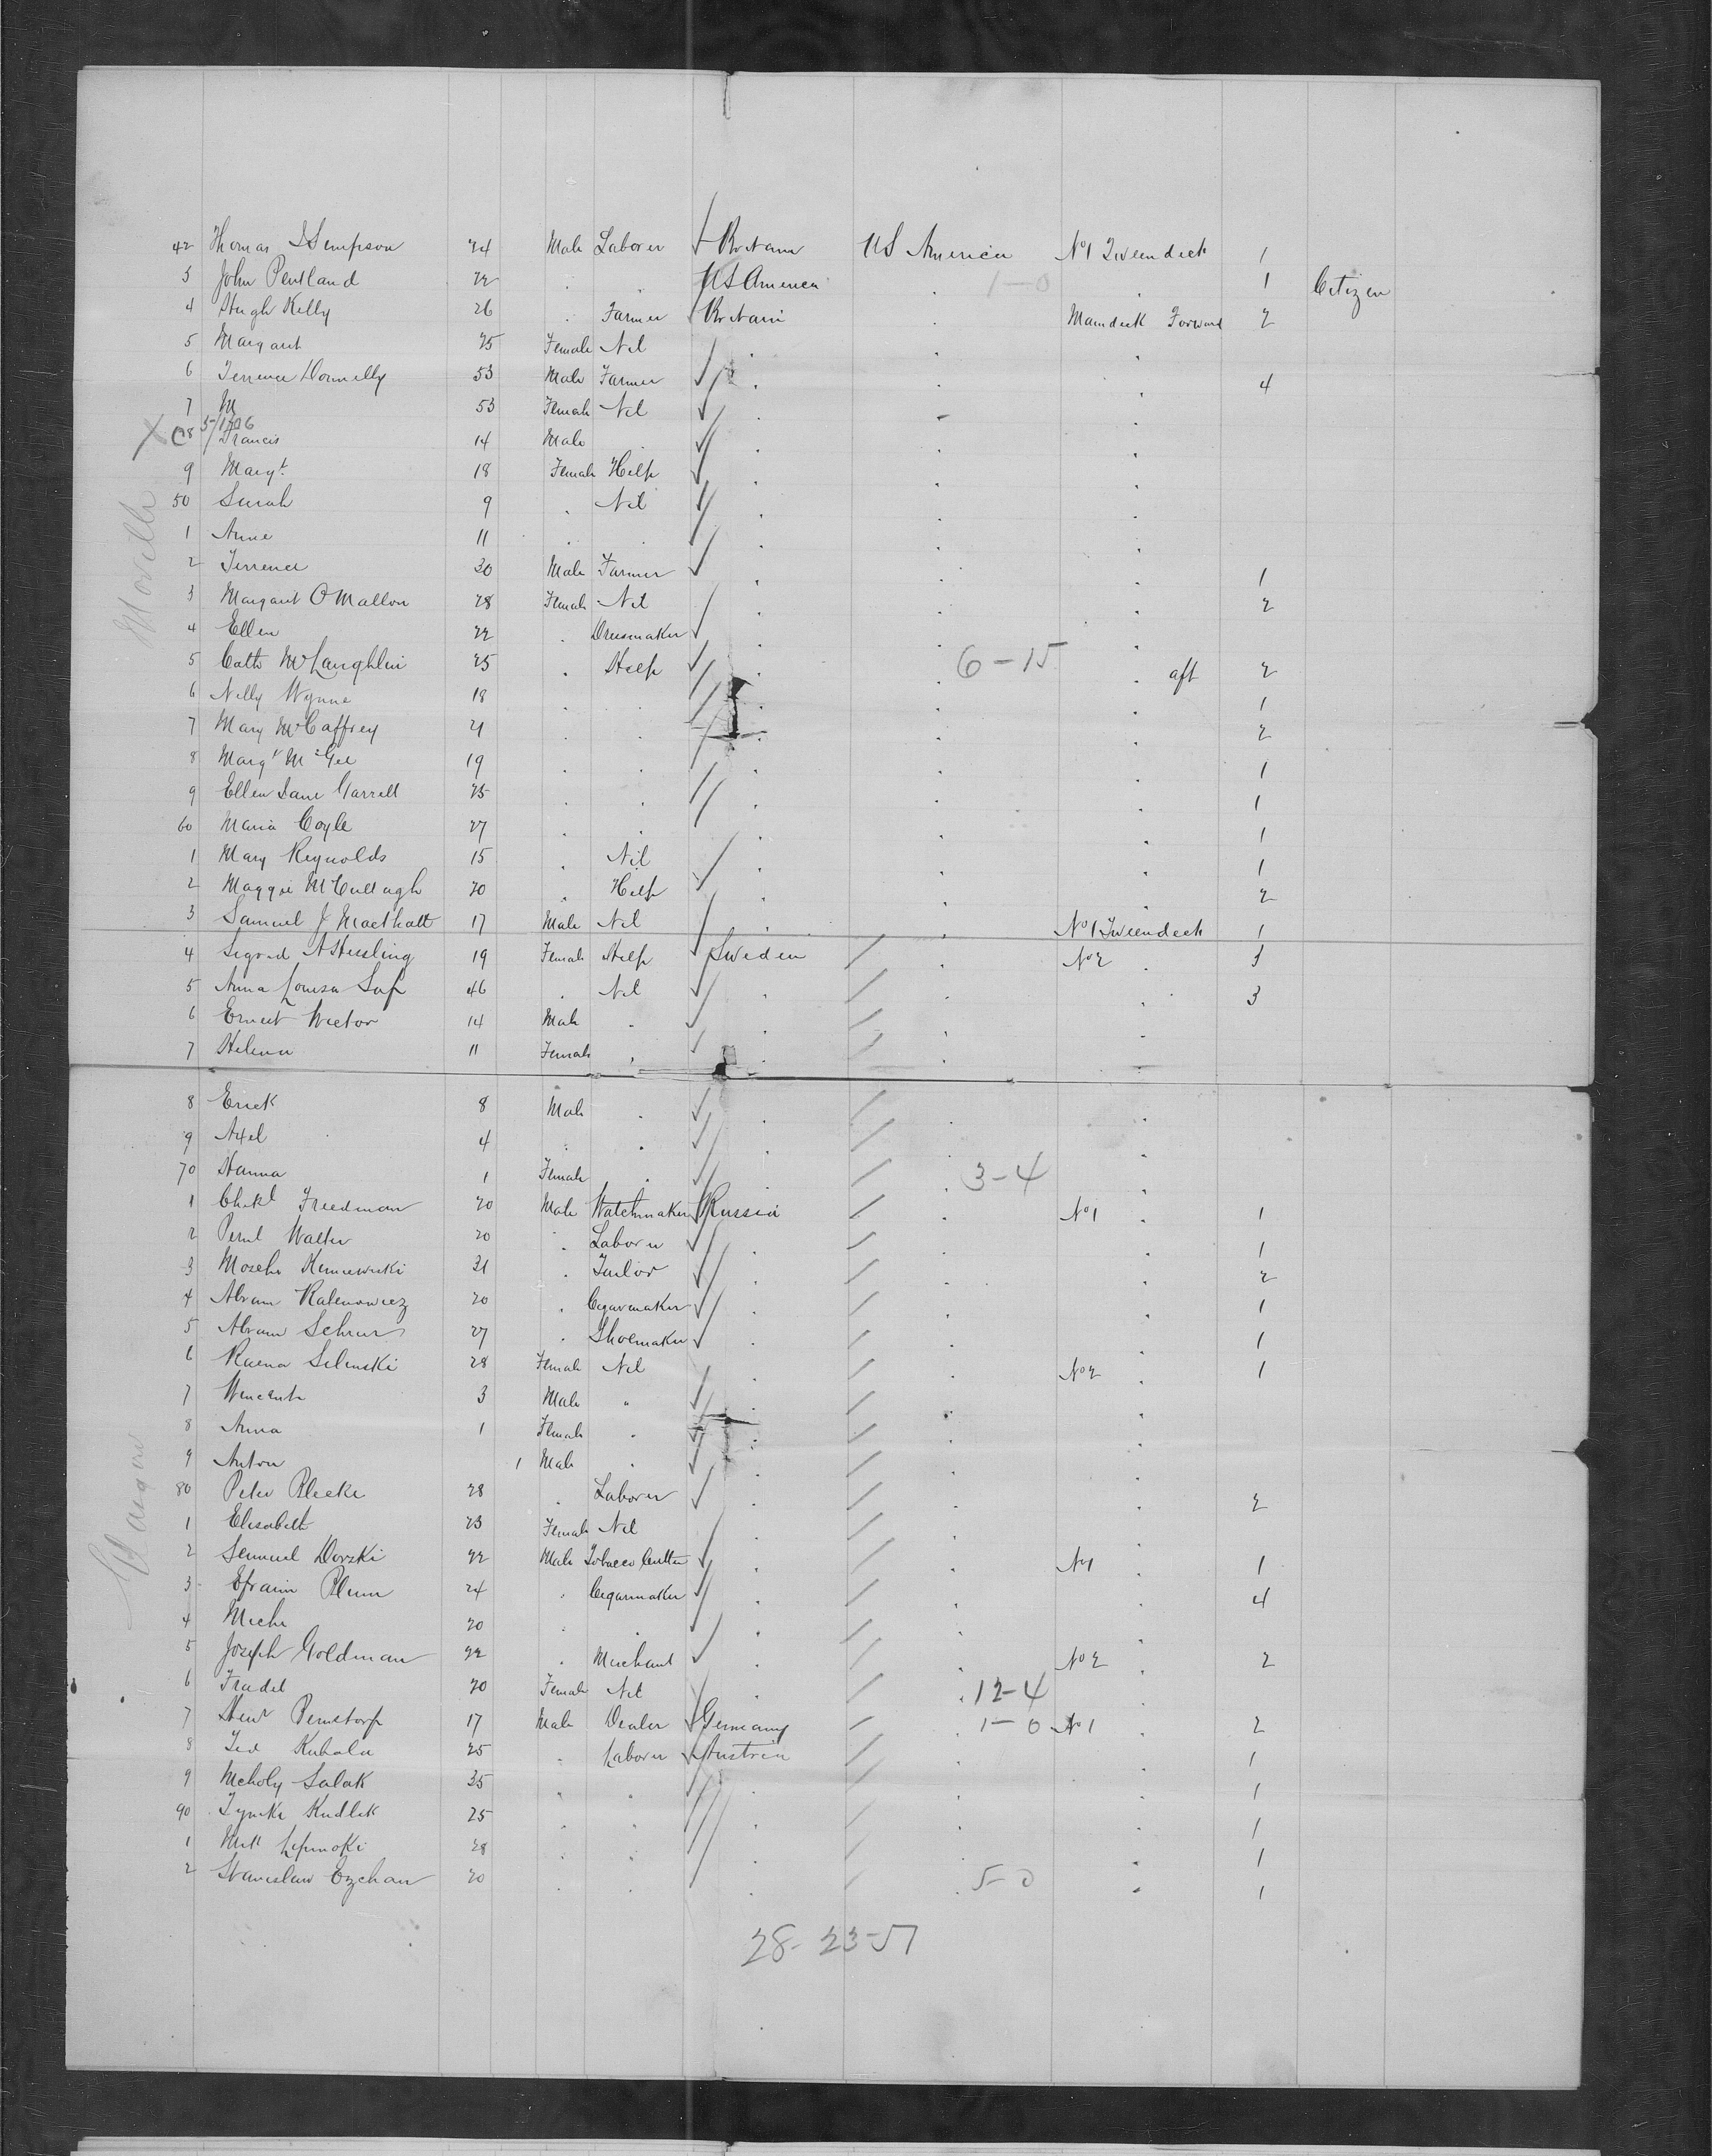 42 Thomas Simpson 24 Male Laborer Britain US America No 1 Tweendeck 1
3 John Pentland 22 . . US America . 1-0 . 1 Citizen
4 Hugh Kelly 26 . Farmer Britain . Maindeck Forward 2
5 Margaret 25 Female Nil . . .
6 Terrence Donnelly 53 Male Farmer . . . 4
7 M 53 Female Nil . - .
8 Francis 14 Male . . . .
9 Margt. 18 Female Help . . .
50 Sarah 9 . Nil . . .
1 Anne 11 . . . . .
2 Terrence 30 Male Farmer . . . 1
3 Margaret O Mallon 28 Female Nil . . . 2
4 Ellen 22 . Dressmaker . . .
5 Cath McLaughlin 25 . Help . . 6-15 . aft 2
6 Nelly Wynne 18 . . . . . 1
7 Mary McCaffrey 21 . . . . . 2
8 Margt McGee 19 . . . . . 1
9 Ellen Jane Garrell 25 . . . . . 1
60 Maria Coyle 27 . . . . . 1
1 Mary Reynolds 15 . Nil . . . 1
2 Maggie McCullagh 20 . Help . . . 2
3 Samuel J 17 Male Nil . . No 1 Tweendeck 1
4 Hessling 19 Female Help Sweden . No 2 . 1
5 Anna Louisa 46 . Nil . . . 3
6 Ernest Wictor 14 Male . . . .
7 Helena 11 Female . . . .
8 Erick 8 Male . . . .
9 Axel 4 . . . . .
70 Hanna 1 Female . . . 3-4 .
1 Freedman 20 Male Watchmaker Russia . No 1 . 1
2 Walter 20 . Laborer . . . 1
3 Mosche 31 . Tailor . . . 2
4 Abram 20 . Cigarmaker . . . 1
5 Abram 27 . Shoemaker . . . 1
6 Selinski 28 Female Nil . . No 2 . 1
7 3 Male " . . .
8 Anna 1 Female . . . .
9 Anton 1 Male . . . .
80 Peter 28 . Laborer . . . 2
1 Elisabeth 23 Female Nil . . .
2 Dorski 22 Male Tobacco Cutter . . No 1 . 1
3 Efraim Blum 24 . Cigarmaker . . . 4
4 20 . . . . .
5 Joseph Goldman 22 . Merchant . . No 2 . 2
6 Fradel 20 Female Nil . . 12-4 .
7 17 Male Dealer Germany . 1-0 No 1 . 2
8 Kubala 25 . Laborer Austria . . 1
9 Salak 35 . . . . . 1
90 Kudlik 25 . . . . . 1
1 28 . . . . . 1
2 Stanislaw 20 . . . . 5-0 . 1
28-23-51
Moville